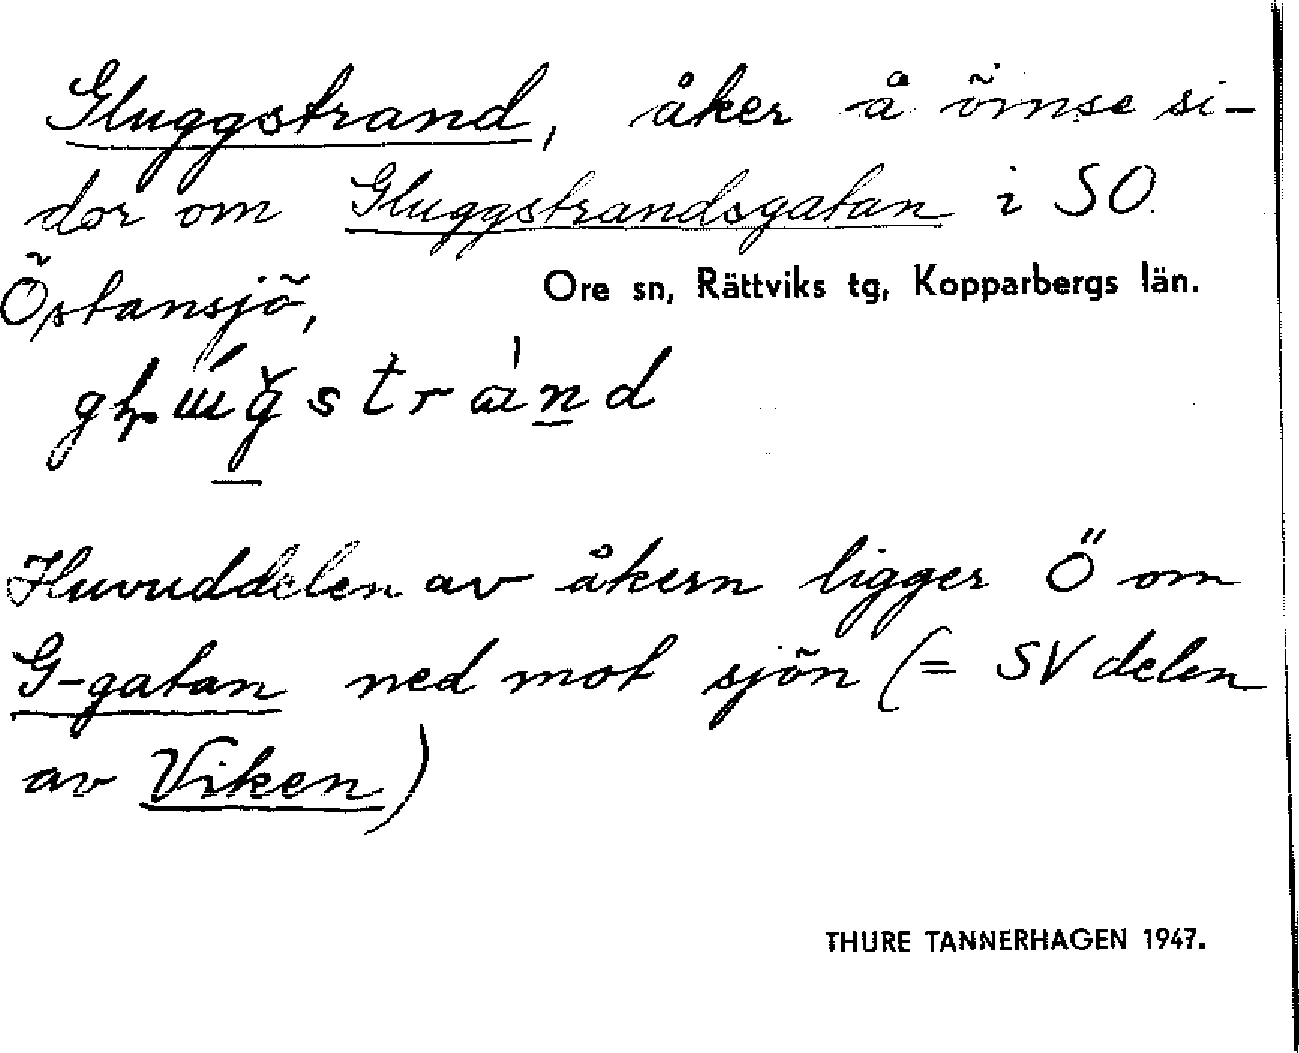 Gluggstrand, åker å ömse si-
dor om Gluggstrandsgatan i SO.
Östansjö,
Ore sn, Rättviks tg, Kopparbergs län.
Huvuddelen av åkern ligger Ö om
G-gatan ned mot sjön (= SV delen
av Viken)
THURE TANNERHAGEN 1947.